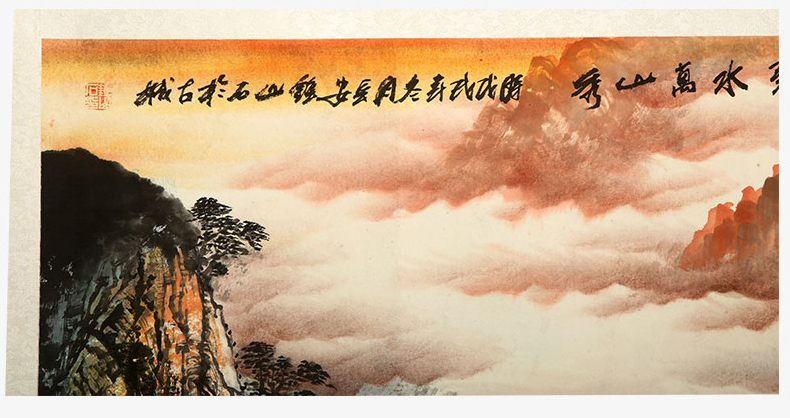 水萬山秀 時戊戌年冬月長安鎮山石於古城